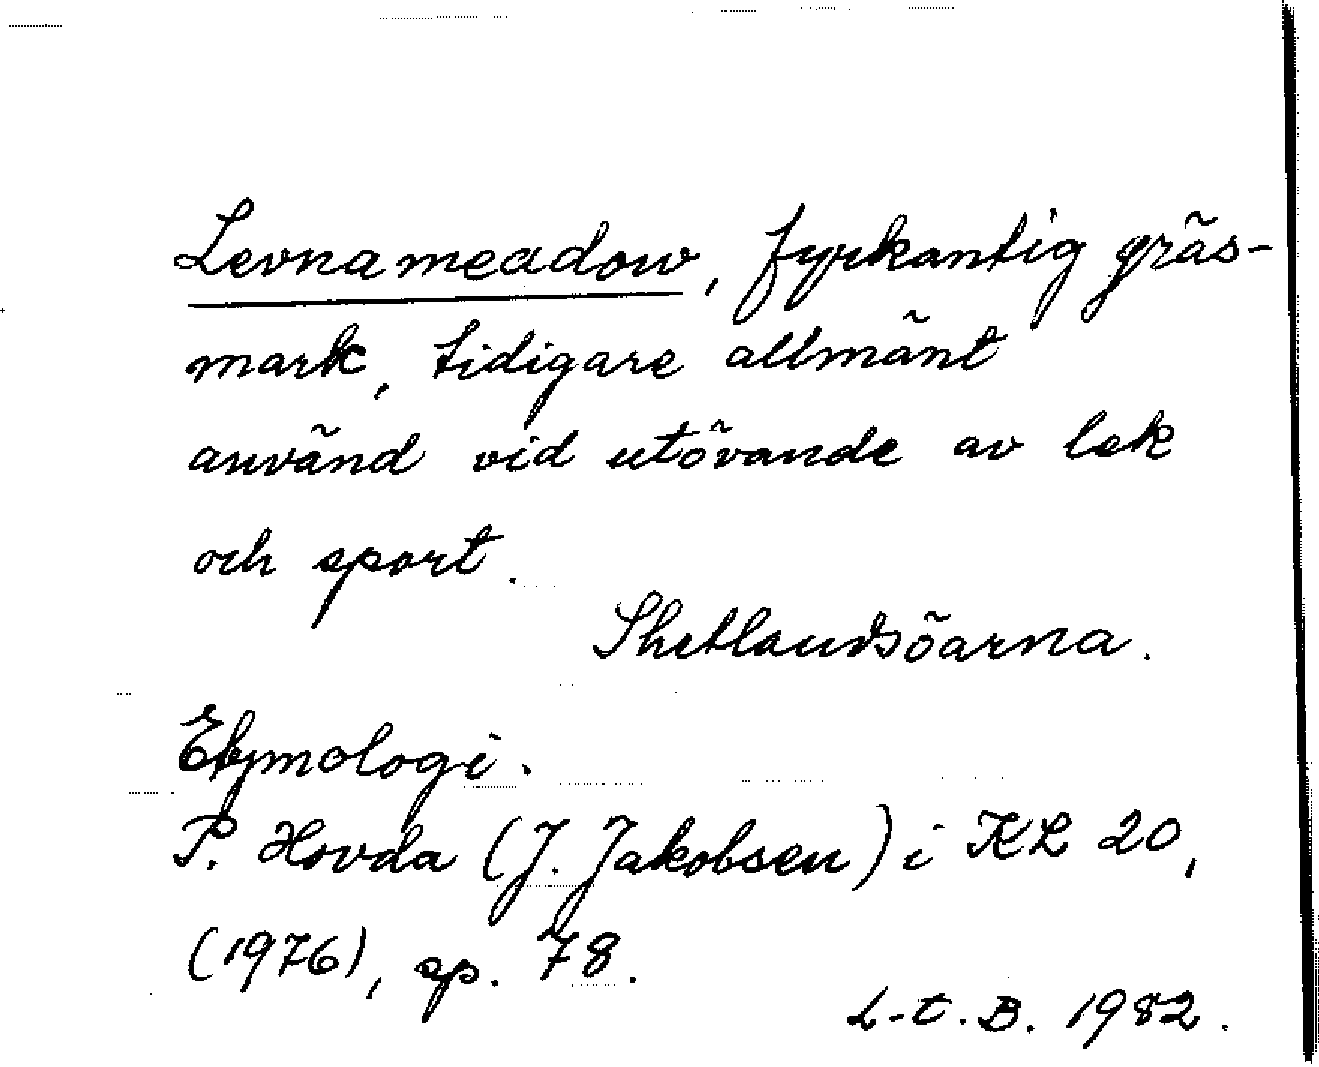 Levnameadow, fyrkantig gräs-
mark, tidigare allmänt
använd vid utövande av lek
och sport.
Shetlandsöarna.
Etymologi.
P. Hovda (J. Jakobsen) i KL 20,
(1976), sp. 78.
L-t. B. 1982.